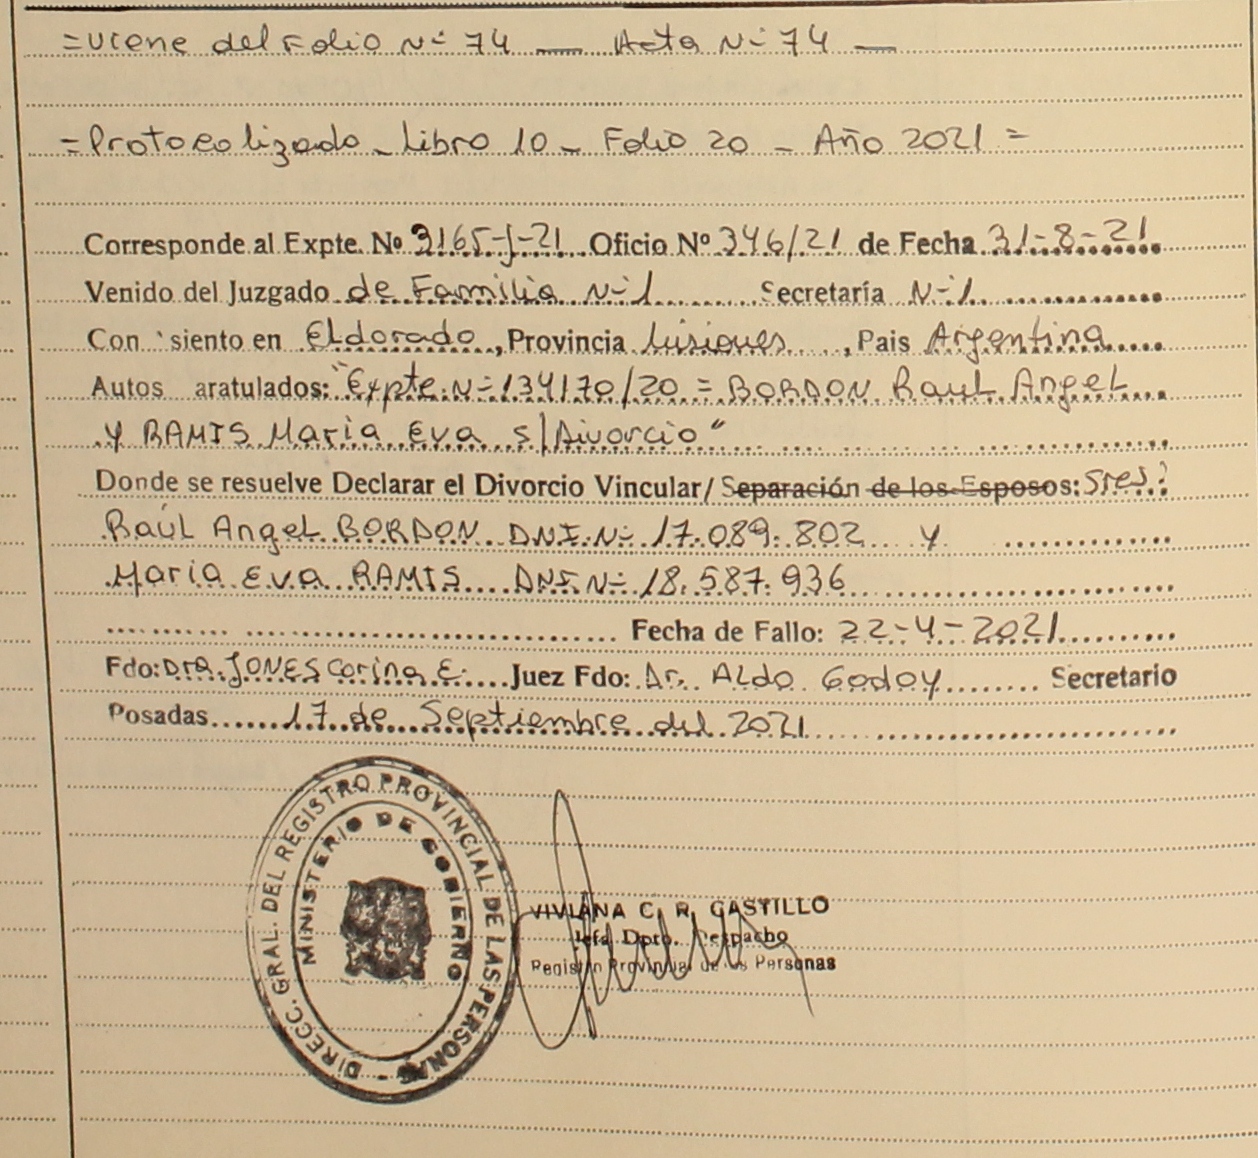 =Viene del Folio Nº 74 — Acta Nº 74 —
=Protocolizado - Libro 10 - Folio 20 - Año 2021 =
Corresponde al Expte. Nº 3165-J-21 Oficio Nº 346/21 de Fecha 31-8-21
Venido del Juzgado de Familia Nº 1 Secretaría Nº 1
Con siento en Eldorado, Provincia Misiones, Pais Argentina
Autos aratulados: "Expte Nº 134170/20 = BORDON Raul Angel
Y RAMIS Maria Eva s/Divorcio"
Donde se resuelve Declarar el Divorcio Vincular/ Separación de los Esposos: Sres:
Raúl Angel BORDON DNI Nº 17.089.802 y
Maria Eva RAMIS DNI Nº 18.587.936
Fecha de Fallo: 22-4-2021
Fdo: Dra. JONES Corina E. Juez Fdo: Dr. Aldo Godoy Secretario
Posadas 17 de Septiembre del 2021
DIRECC. GRAL. DEL REGISTRO PROVINCIAL DE LAS PERSONAS -
MINISTERIO DE GOBIERNO
VIVIANA C. R. CASTILLO
Jefa Dpto. Despacho
Registro Provincial de las Personas